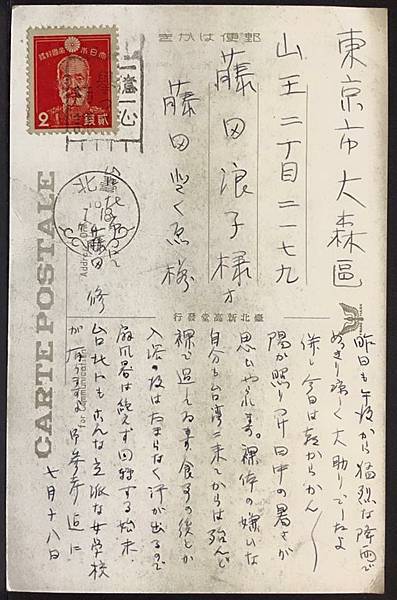 郵便はかき
大日本帝國郵便
2
貳錢
一億一心
東京市大森區
山王二丁目二一七九
藤田浪子様方
藤田
様
臺北
藤田 修
CARTE POSTALE
臺北新高堂發行
昨日も午後から猛烈な降雨で
めっきり涼しく大助りでしたよ
併し今日は朝からかん〱
陽が照りつけ日中の暑さが
思ひやられます。裸体の嫌いな
自分も台湾に来てからは殆んど
裸で過して居ます 食事の後とか
入浴の後はたまらなく汗が出るので
扇風器は絶えず回転する始末
台北にもこんな立派な女学校
が有りますよ 御参考迄に
七月十八日